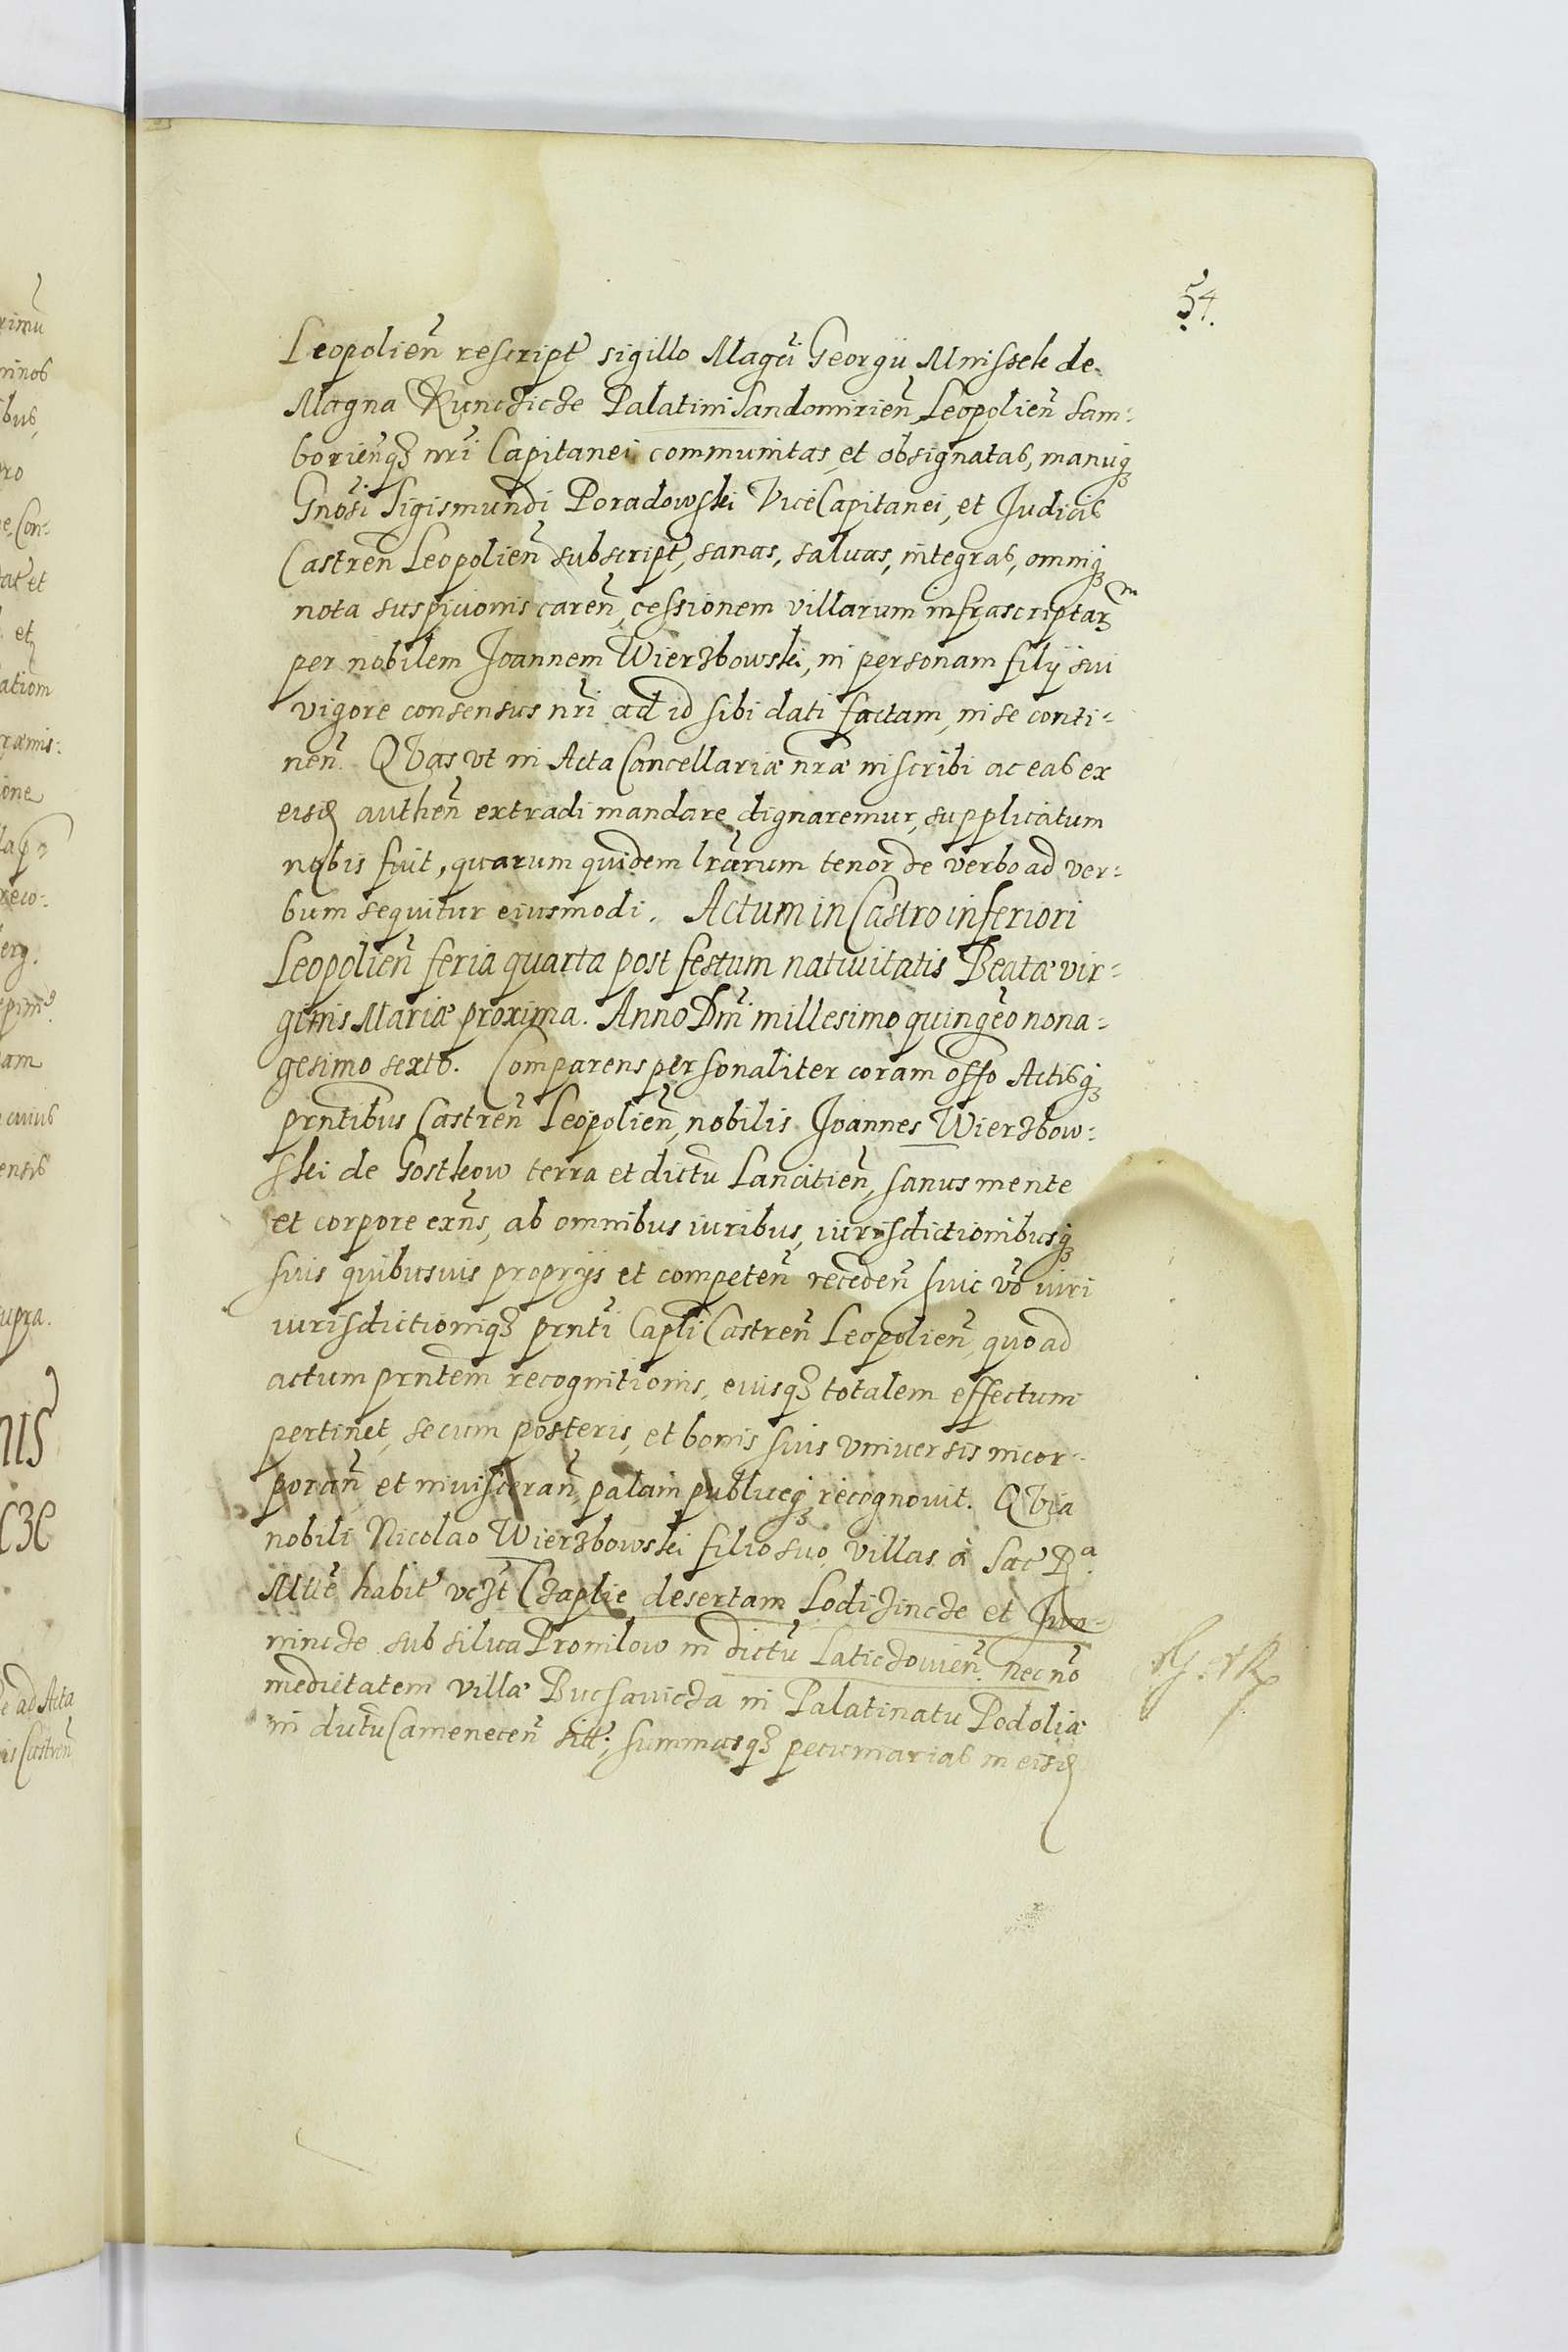 54.
Leopolien̄ rescript̄ sigillo Magc̄i Georgii Mnisšek de
Magna Kunczicze Palatini Sandomirien̄, Leopolien̄ Sam-
borien̄q̃ nr̄i Capitanei communitas, et obsignatas, manuq̃
Gnōsi Sigismundi Poradowski ViceCapitanei, et Judicis
Castren̄ Leopolien̄ subscript̄, sanas, saluas, integras, omniq̃
nota suspicionis caren̄, cessionem villarum infrascriptarm
per nobilem Joannem Wierzbowski, in personam filij sui
vigore consensus nr̄i ad id sibi dati factam, in se conti-
nen̄. QVas vt in Acta Cancellariæ nr̄æ inscribi ac eas ex
eisd authen̄ extradi mandare dignaremur, supplicatum
nobis fuit, quarum quidem lr̄arum tenor de verbo ad ver-
bum sequitur eiusmodi. Actum in Castro inferiori
Leopolien̄ feria quarta post festum natiuitatis Beatæ vir-
ginis Mariæ proxima. Anno Dm̄ millesimo quingēo nona-
gesimo sexto. Comparens personaliter coram offō Actisq̃
prn̄tibus Castren̄ Leopolien̄, nobilis Joannes Wierzbow-
ski de Gostkow terra et dictū Lancitien̄, sanus mente
et corpore exn̄s, ab omnibus iuribus, iurisdictionibusq̃
suis quibusuis proprijs et competen̄ receden̄ huic vō iuri
iurisdictioniq̃ prn̄ti Capl̄i Castren̄ Leopolien̄, quo ad
actum prn̄tem recognitionis, eiusq̃ totalem effectum
pertinet, secum posteris, et bonis suis vniuersis incor-
poran̄ et inuisceran̄, palam publiceq̃ recognouit. QVia
nobili Nicolao Wierzbowski filio suo, villas à Sac̄ Rᵃ
Mtt̄e habit̄ vczt̄ Czaplie desertam Lodizincze et Jwa-
nincze sub silua Pronilow in dictū Laticzouien̄. Necnō
medietatem villæ Bucsauicza in Palatinatu Podoliæ
in dictū Camenecen̄ sitt̄, summasq̃ pecuniarias in eisd